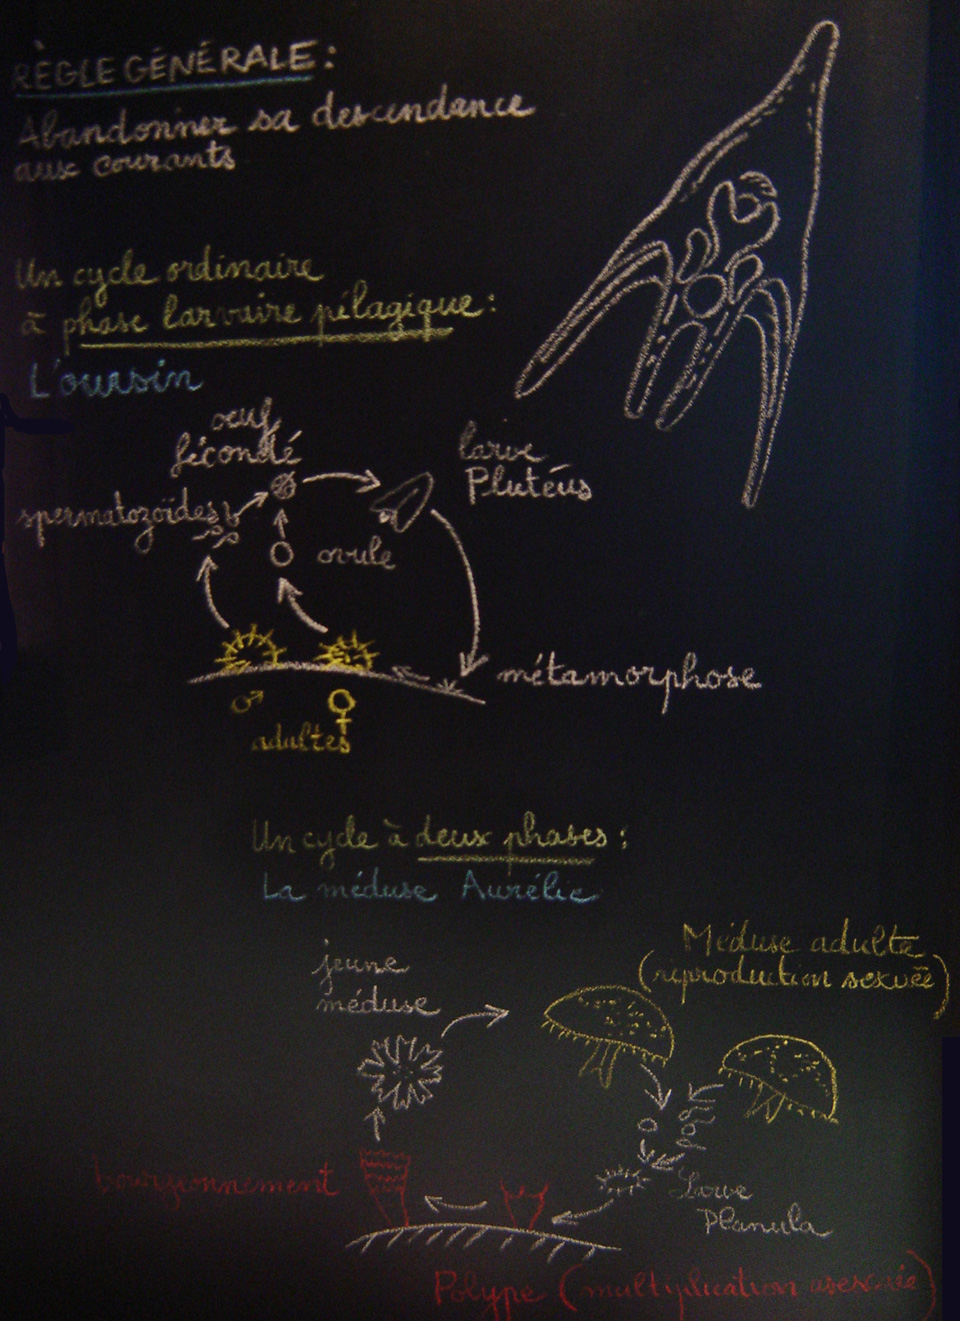 RÈGLE GÉNÉRALE :
Abandonner sa descendance
aux courants
Un cycle ordinaire
à phase larvaire pélagique :
L'oursin
oeuf
fécondé
larve
Plutéus
spermatozoïdes
ovule
métamorphose
♂ ♀
adultes
Un cycle à deux phases :
La méduse Aurélie
Méduse adulte
(reproduction sexuée)
jeune
méduse
bourgeonnement
Larve
Planula
Polype (multiplication asexuée)